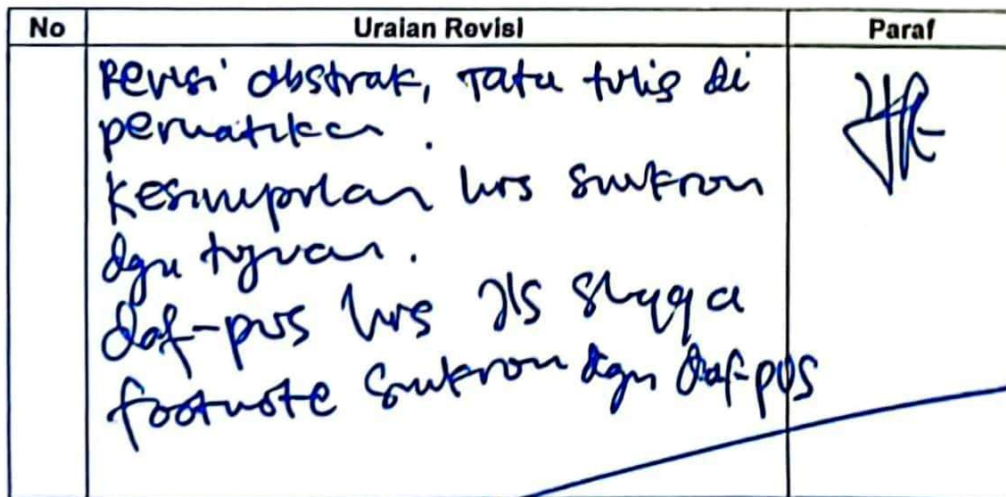 No Uraian Revisi Paraf
Revisi abstrak, Tata tulis di
perhatikan.
Kesimpulan hrs sinkron
dgn tujuan.
daf-pus hrs jls shgga
footnote sinkron dgn daf-pus